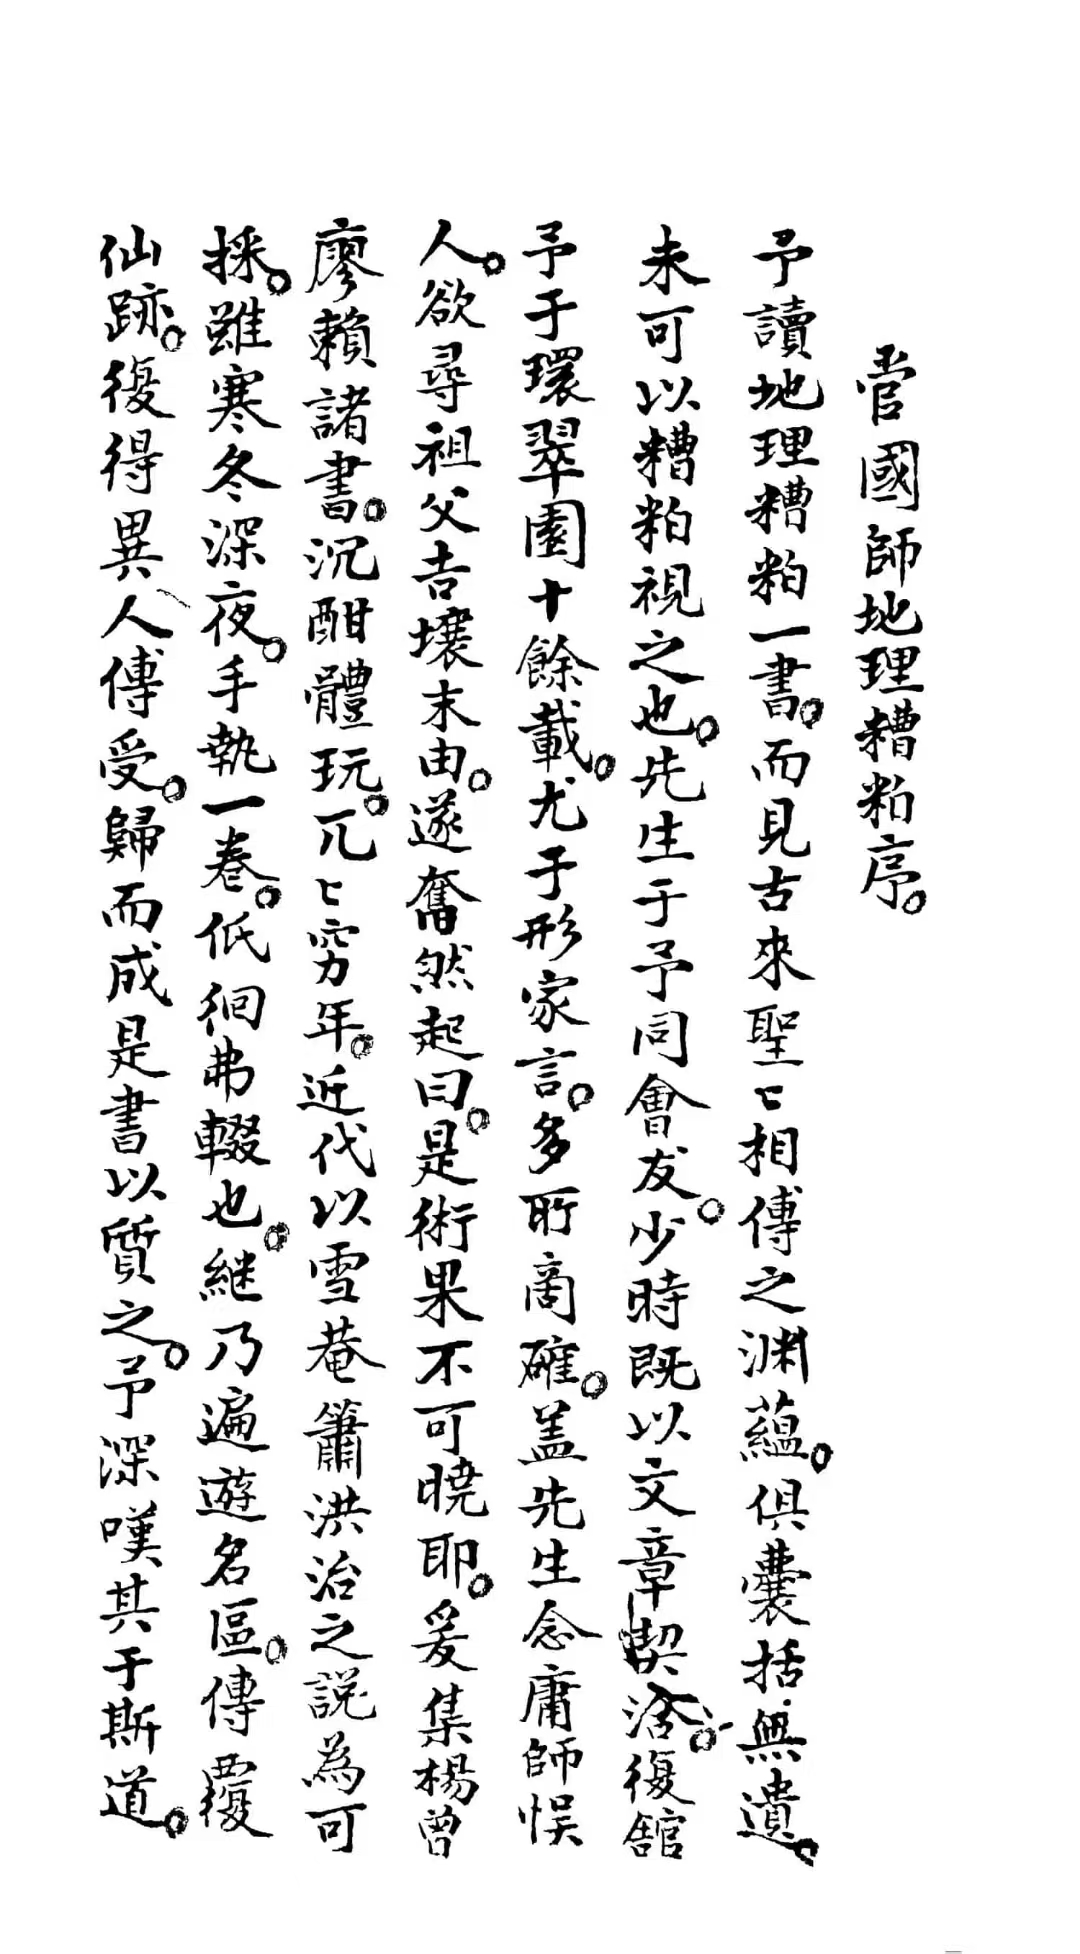 官國師地理糟粕序。
予讀地理糟粕一書。而見古來聖〻相傳之渊蘊。俱囊括無遺。
未可以糟粕視之也。先生于予同會友。少時既以文章契洽。復舘
予于環翠園十餘載。尤于形家言。多所商確。盖先生念庸師悮
人。欲尋祖父吉壤末由。遂奮然起曰。是術果不可曉耶。爰集楊曾
廖賴諸書。沉酣體玩。兀〻窮年。近代以雪菴簫洪治之説為可
採。雖寒冬深夜。手執一卷。低徊弗輟也。継乃遍遊名區。傳覆
仙跡。復得異人傳受。歸而成是書以質之。予深嘆其于斯道。